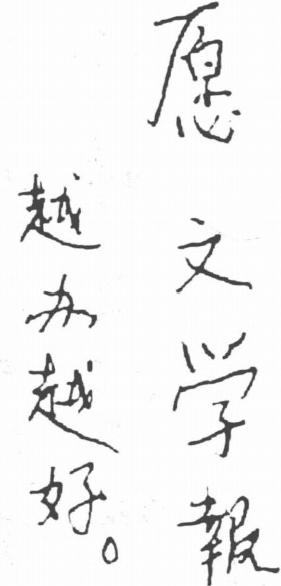 愿文学報
越办越好。